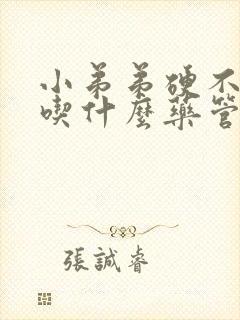 小弟弟硬不
喫什麼藥管
張誠睿